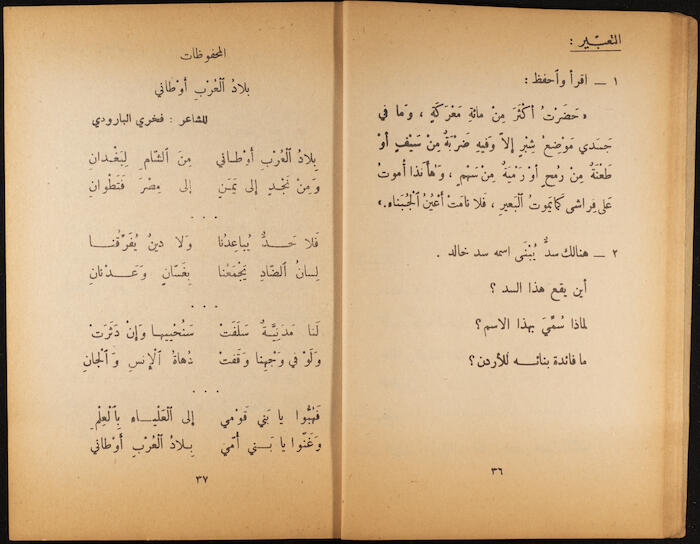 التعبير :
١ ــ اقرأ واحفظ :
« حَضَرْتُ أكْثَرَ مِنْ مائةِ مَعْرَكَةٍ ، وَما في
جَسَدي مَوْضِعُ شِبْرٍ إلاّ وَفيهِ ضَرْبَةٌ مِنْ سَيْفٍ أوْ
طَعْنَةٌ مِنْ رُمحٍ أوْ رَمْيَةٌ مِنْ سَهْمٍ ، وَهأنَذا أموتُ
عَلى فِراشي كَما يَموتُ البَعيرِ ، فَلا نامَتْ أعْيُنُ الْجُبَناءِ. »
٢ ــ هنالك سدٌّ يُبْنَى اسمه سد خالد .
أين يقع هذا السد ؟
لماذا سُمِّيَ بهذا الاسم ؟
ما فائدة بنائه للأردن ؟
٣٦
المحفوظات
بلادُ الْعُرْبِ أوْطاني
للشاعر : فخري البارودي
بِلادُ الْعُرْبِ أوْطاني مِنَ الشّامِ لِبَغْدانِ
وَمِنْ نَجْدٍ إلى يَمَنٍ إلى مِصْرَ فَتَطْوانِ
. . .
فَلا حَدٌّ يُباعِدُنا وَلا دينٌ يُفَرِّقُنا
لِسانُ الضّادِ يَجْمَعُنا بِغَسّانٍ وَعَدْنانِ
. . .
لَنا مَدَنِيَّةٌ سَلَفَتْ سَنُحْييها وَإنْ دَثَرَتْ
وَلَوْ في وَجْهِنا وَقَفَتْ دُهاةُ الْإنْسِ وَالْجانِ
. . .
فَهُبُّوا يا بَني قَوْمي إلى الْعَلْياءِ بِالْعِلْمِ
وَغَنّوا يا بَني أمّي بِلادُ الْعُرْبِ أوْطاني
٣٧